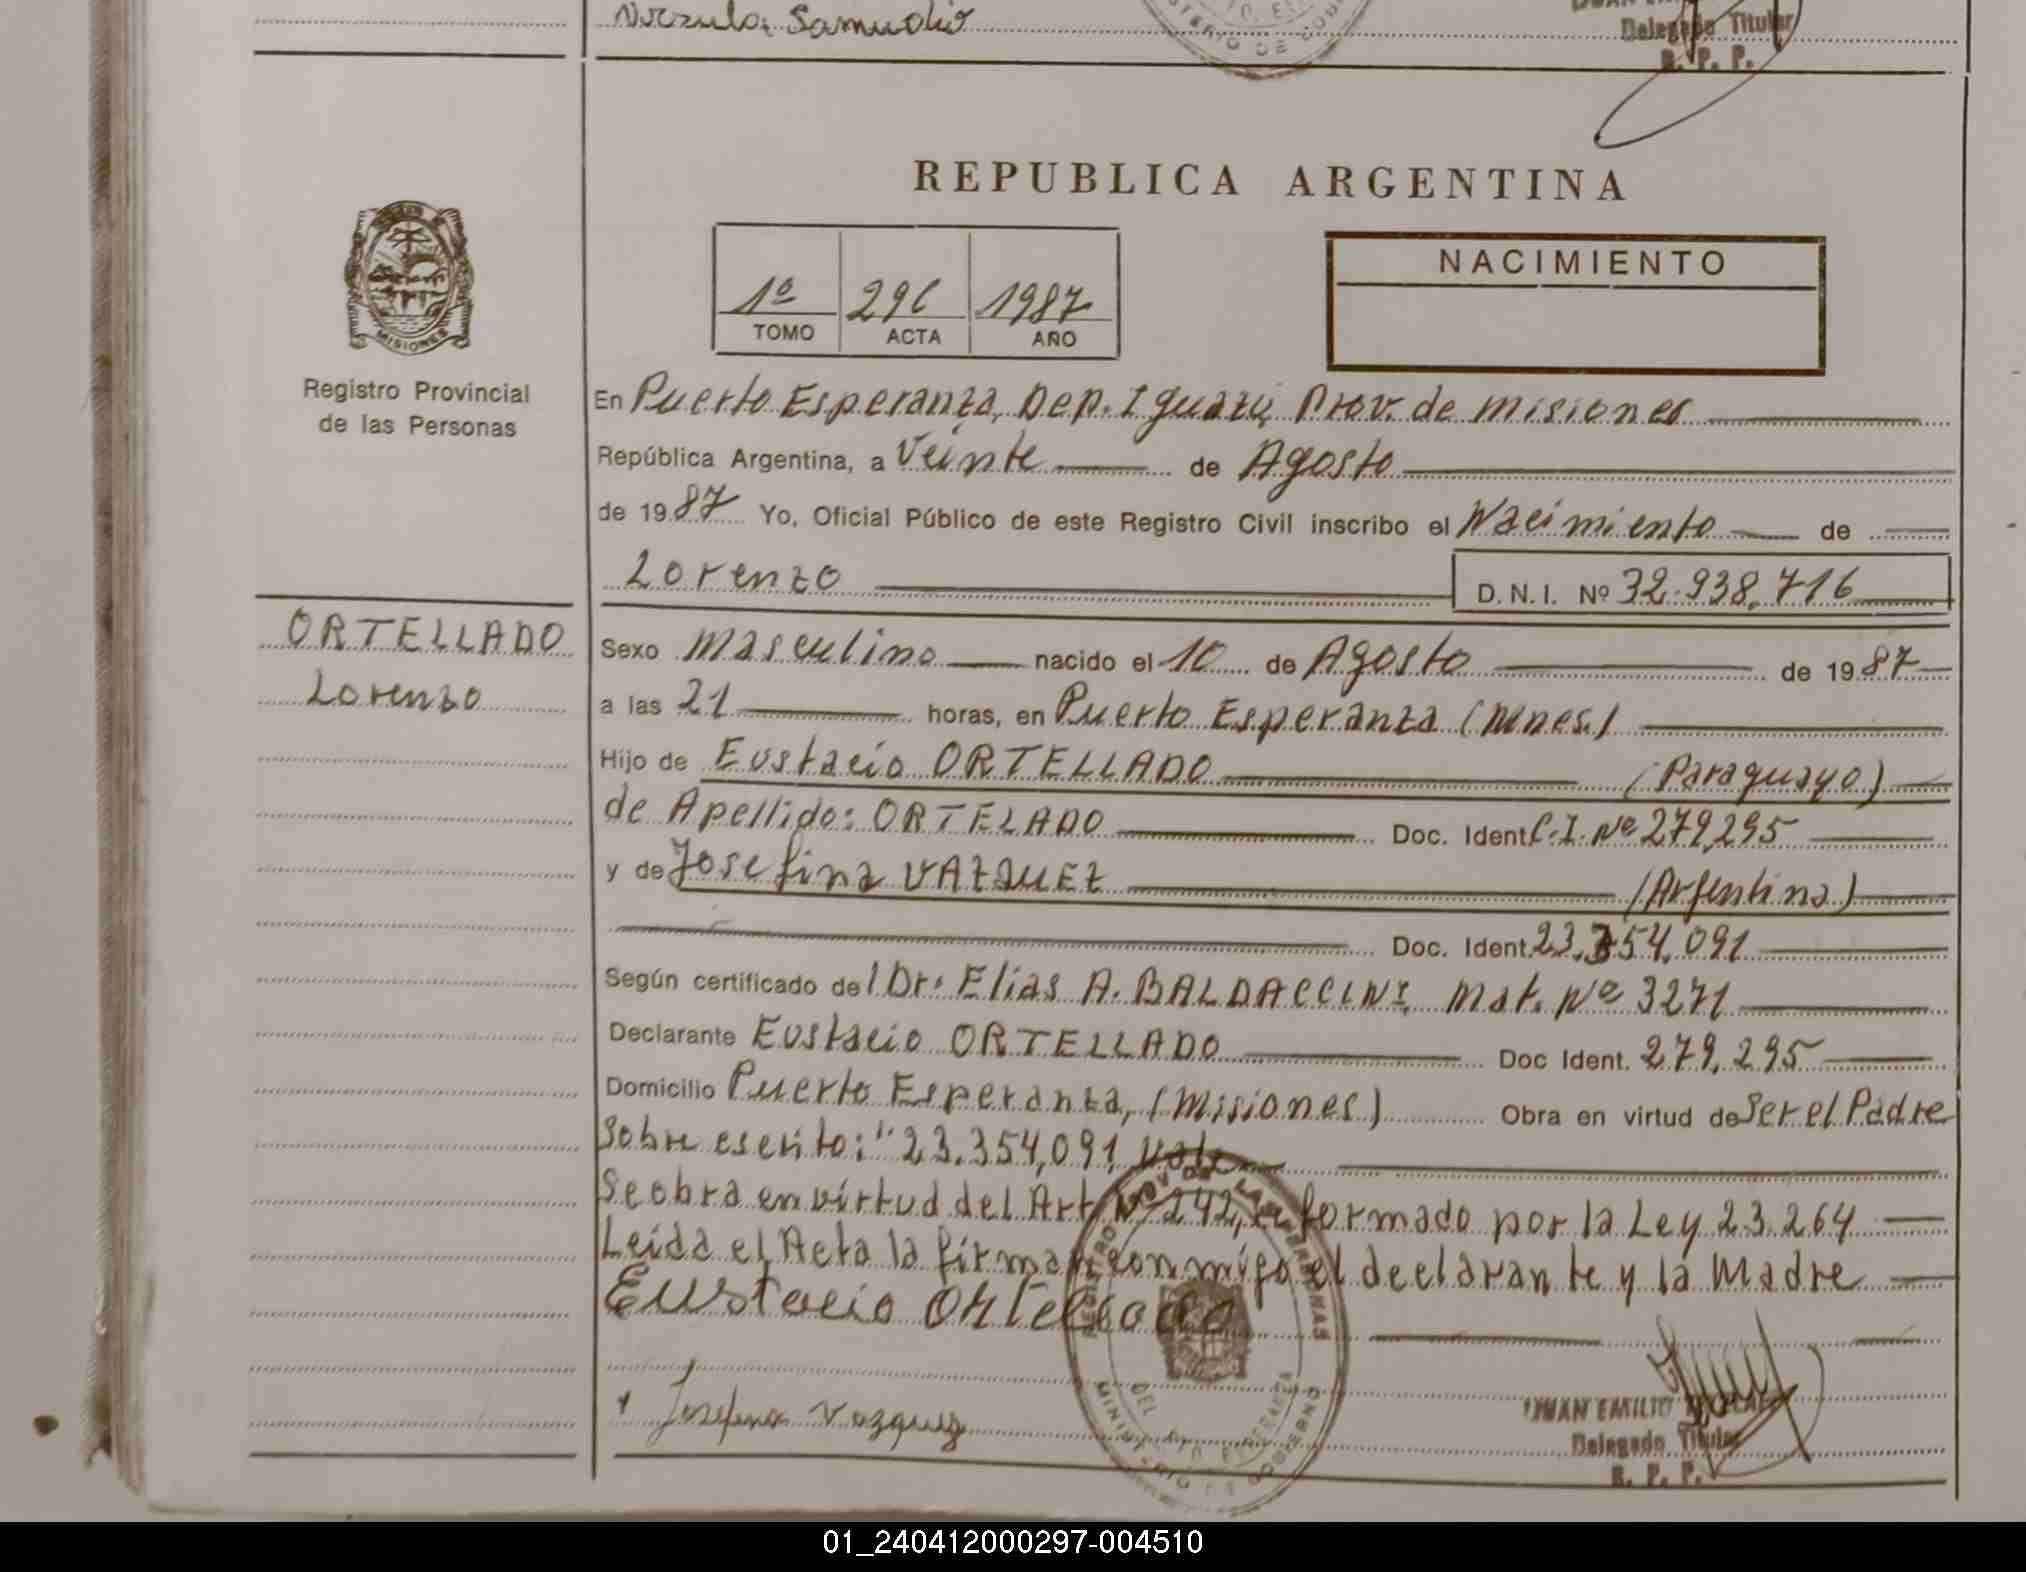 Samudio
Delegado Titular
R. P. P.
REPUBLICA ARGENTINA
1º 296 1987
TOMO ACTA AÑO
NACIMIENTO
MISIONES
Registro Provincial
de las Personas
En Puerto Esperanza, Dep. Iguazú Prov. de Misiones
República Argentina, a Veinte de Agosto
de 1987 Yo, Oficial Público de este Registro Civil inscribo el Nacimiento de
Lorenzo D.N.I. Nº 32.938.716
ORTELLADO
Lorenzo
Sexo Masculino nacido el 10 de Agosto de 1987
a las 21 horas, en Puerto Esperanza (Mnes.)
Hijo de Eustacio ORTELLADO (Paraguayo)
de Apellido: ORTELADO Doc. Ident. C.I. Nº 279,295
y de Josefina VAZQUEZ (Argentina)
Doc. Ident. 23.354.091
Según certificado del Dr. Elias A. BALDACCINI Mat. Nº 3271
Declarante Eustacio ORTELLADO Doc Ident. 279.295
Domicilio Puerto Esperanza, (Misiones) Obra en virtud de Ser el Padre
Sobre escrito: "23.354,091, Vale
Se obra en virtud del Art. Nº 242, reformado por la Ley 23.264
Leída el Acta la firman conmigo el declarante y la Madre
Eustacio Ortellado
Josefina Vazquez
JUAN EMILIO
Delegado Titular
R. P. P.
REGISTRO PROV. DE LAS PERSONAS
MINISTERIO DE GOBIERNO
01_240412000297-004510